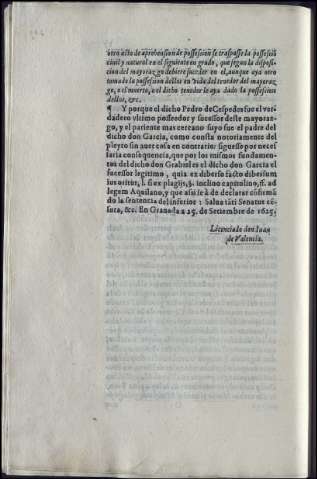 otro acto de aprehension de possession se traspasse la possession
ciuil y natural en el siguiente en grado, que segun la disposi-
cion del mayorazgo debiere suceder en el, aunque aya otro
tomado la possession dellos en vida del tenedor del mayoraz-
go, o el muerto, o el dicho tenedor le aya dado la possession
dellos, &c.
¶ Y porque el dicho Pedro de Cespedes fue el ver-
dadero vltimo posseedor y sucessor deste mayoraz-
go, y el pariente mas cercano suyo fue el padre del
dicho don Garcia, como consta notoriamente del
pleyto sin auer cosa en contrario: siguesse por neces-
saria consequencia, que por los mismos fundamen-
tos del dicho don Grabiel es el dicho don Garcia el
sucessor legitimo, quia ex diuerso facto diuersum
ius oritur, l. si ex plagijs, §. in cliuo capitolino, ff. ad
legem Aquiliano, y que assi se à de declarar confirmā
do la sentencia del inferior: Salua tāti Senatus cē-
sura, &c. En Granada a 25. de Setiembre de 1625.
Licenciado don Iuan
de Valencia.